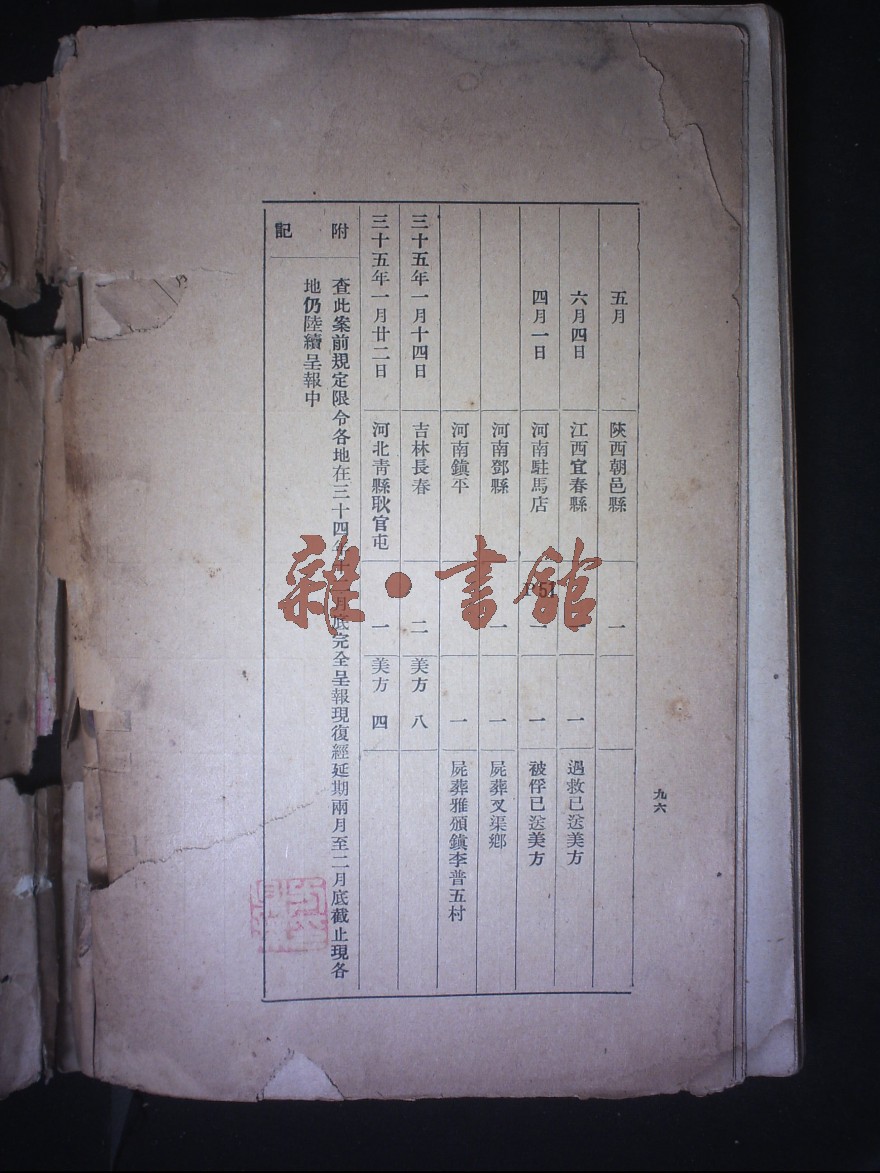 五月 陝西朝邑縣 一
六月四日 江西宜春縣 一 一 遇救已送美方
四月一日 河南駐馬店 P51 一 一 被俘已送美方
河南鄧縣 一 一 屍葬叉渠鄉
河南鎮平 一 屍葬雅頒鎮李普五村
三十五年一月十四日 吉林長春 二 美方 八
三十五年一月廿二日 河北青縣耿官屯 一 美方 四
附記
查此案前規定限令各地在三十四年十二月底完全呈報現復經延期兩月至二月底截止現各
地仍陸續呈報中
九六
雜·書館